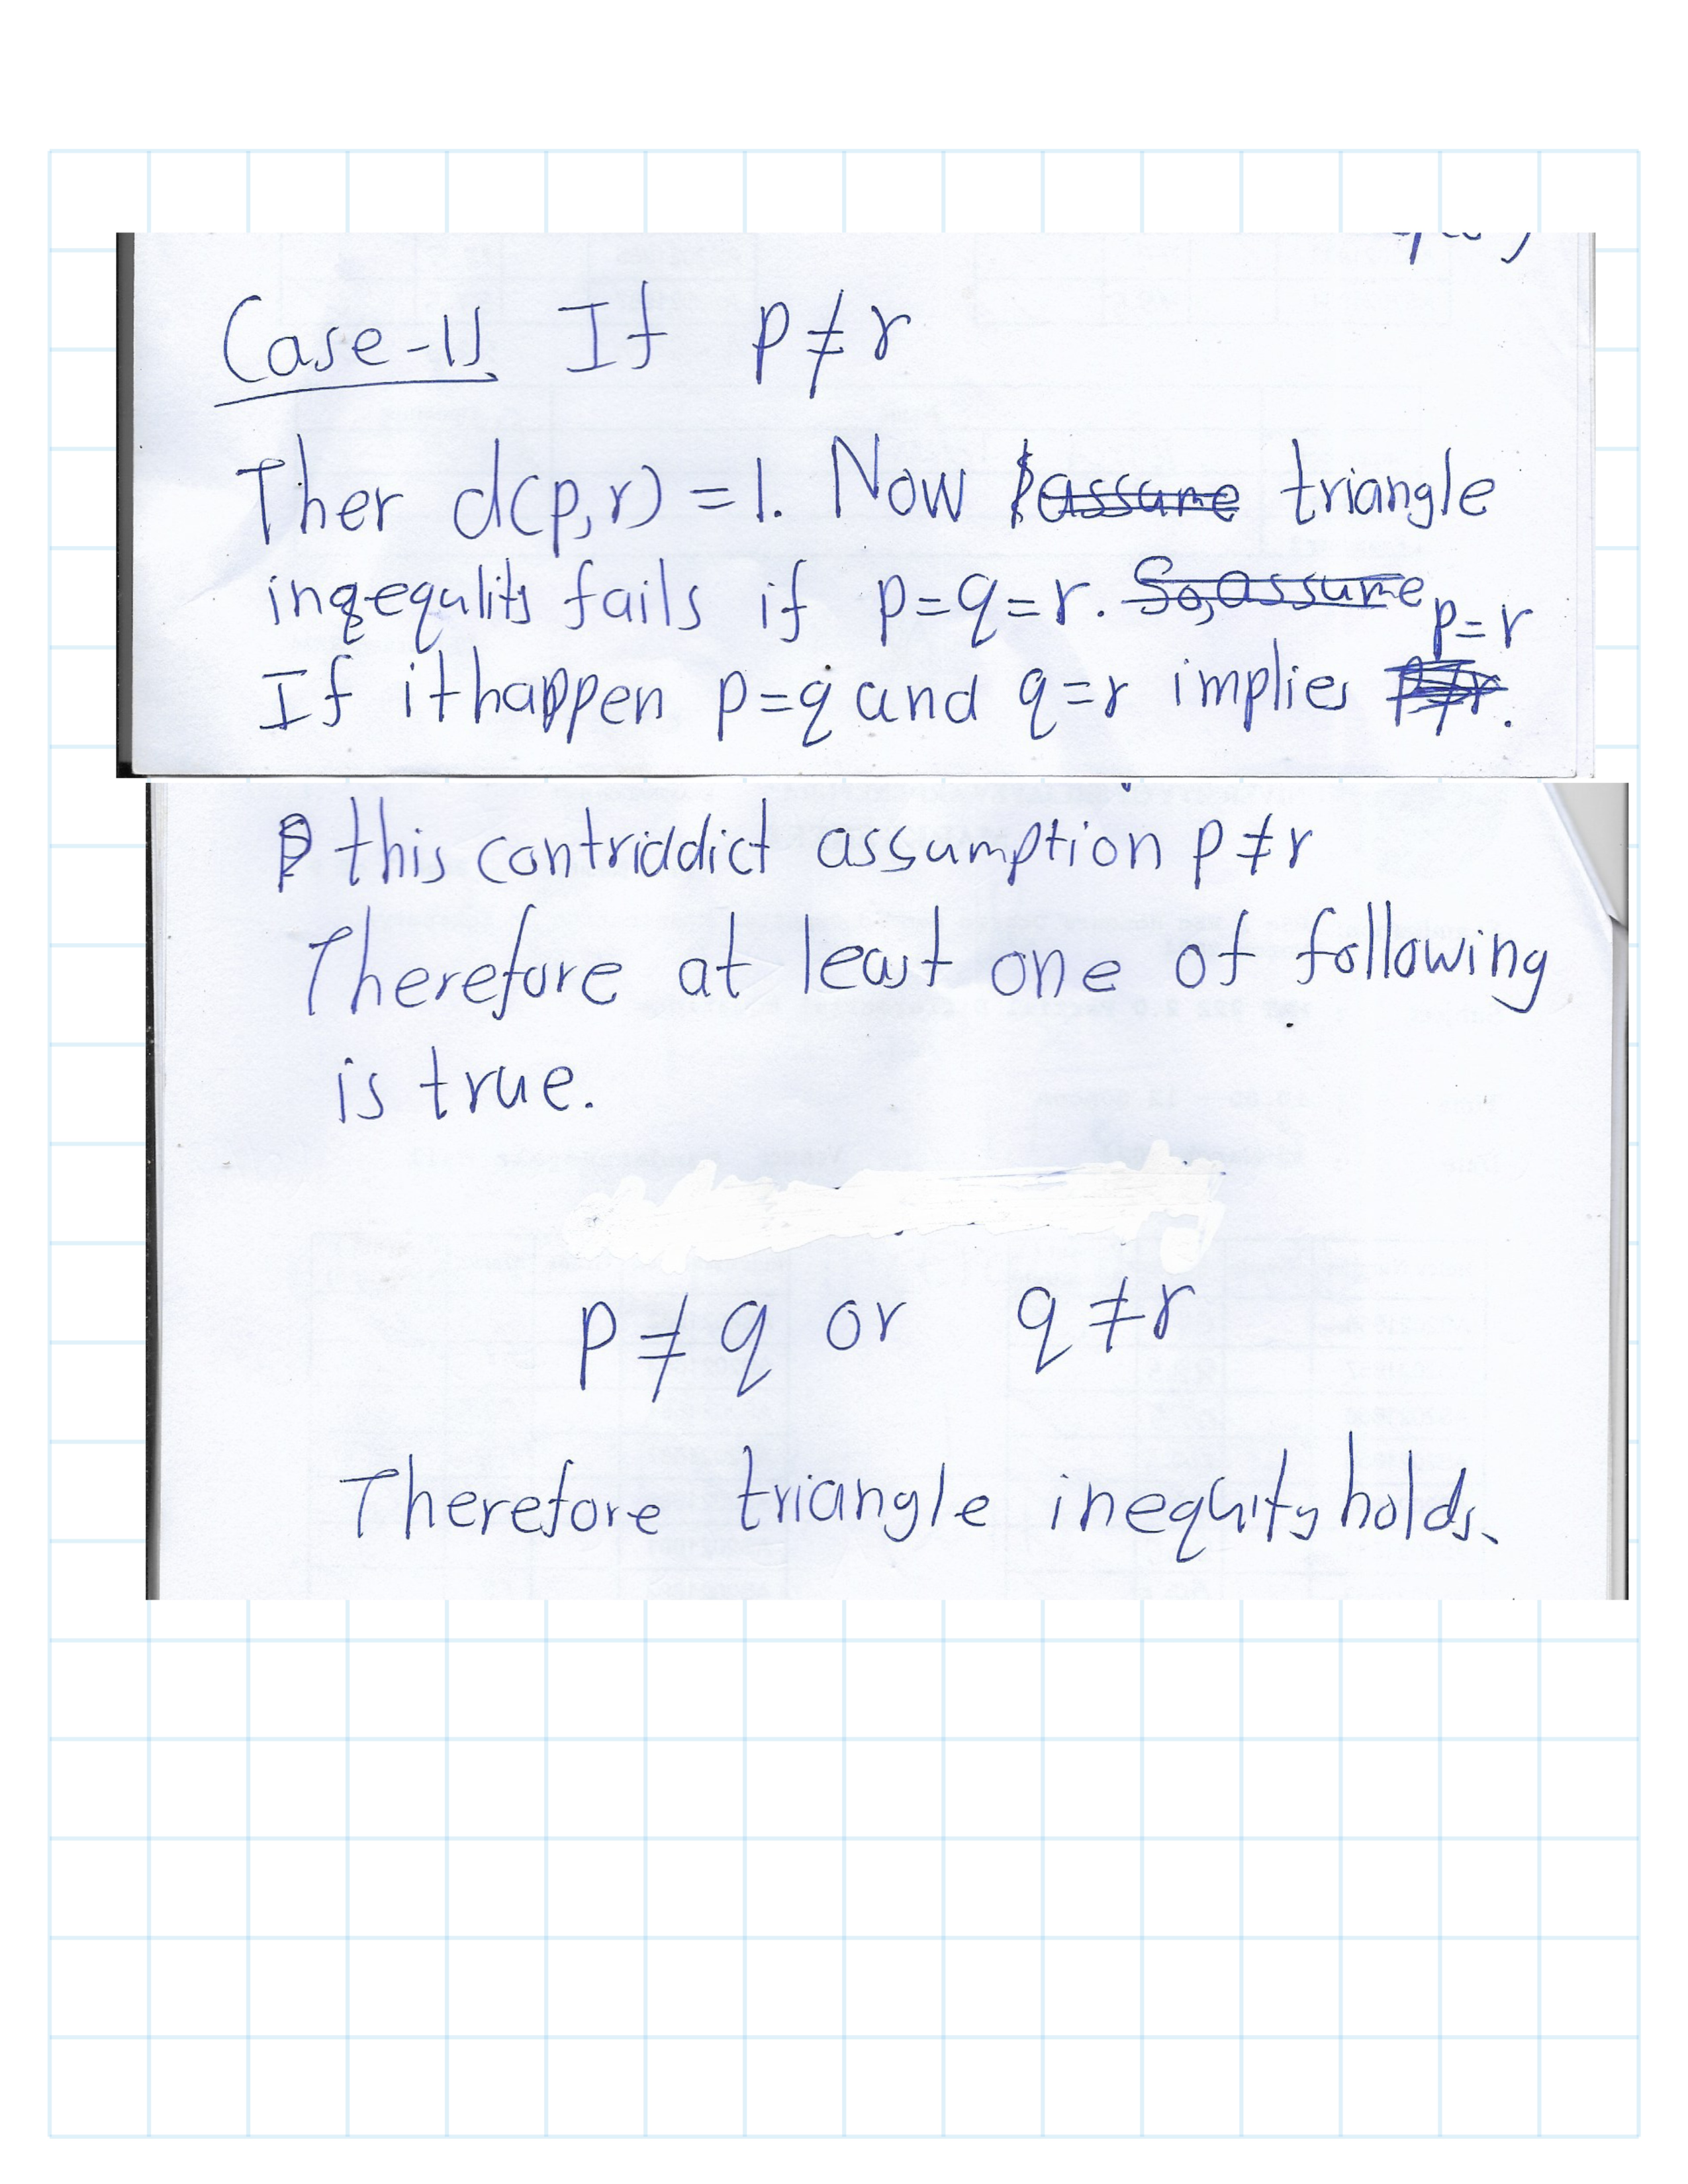 Case-II If p ≠ r
Ther d(p,r) = 1. Now assume triangle
inqequlity fails if p=q=r. So, assume p=r
If it happen p=q and q=r implies
this contriddict assumption p ≠ r
Therefore at least one of following
is true.
p ≠ q or q ≠ r
Therefore triangle inequity holds.